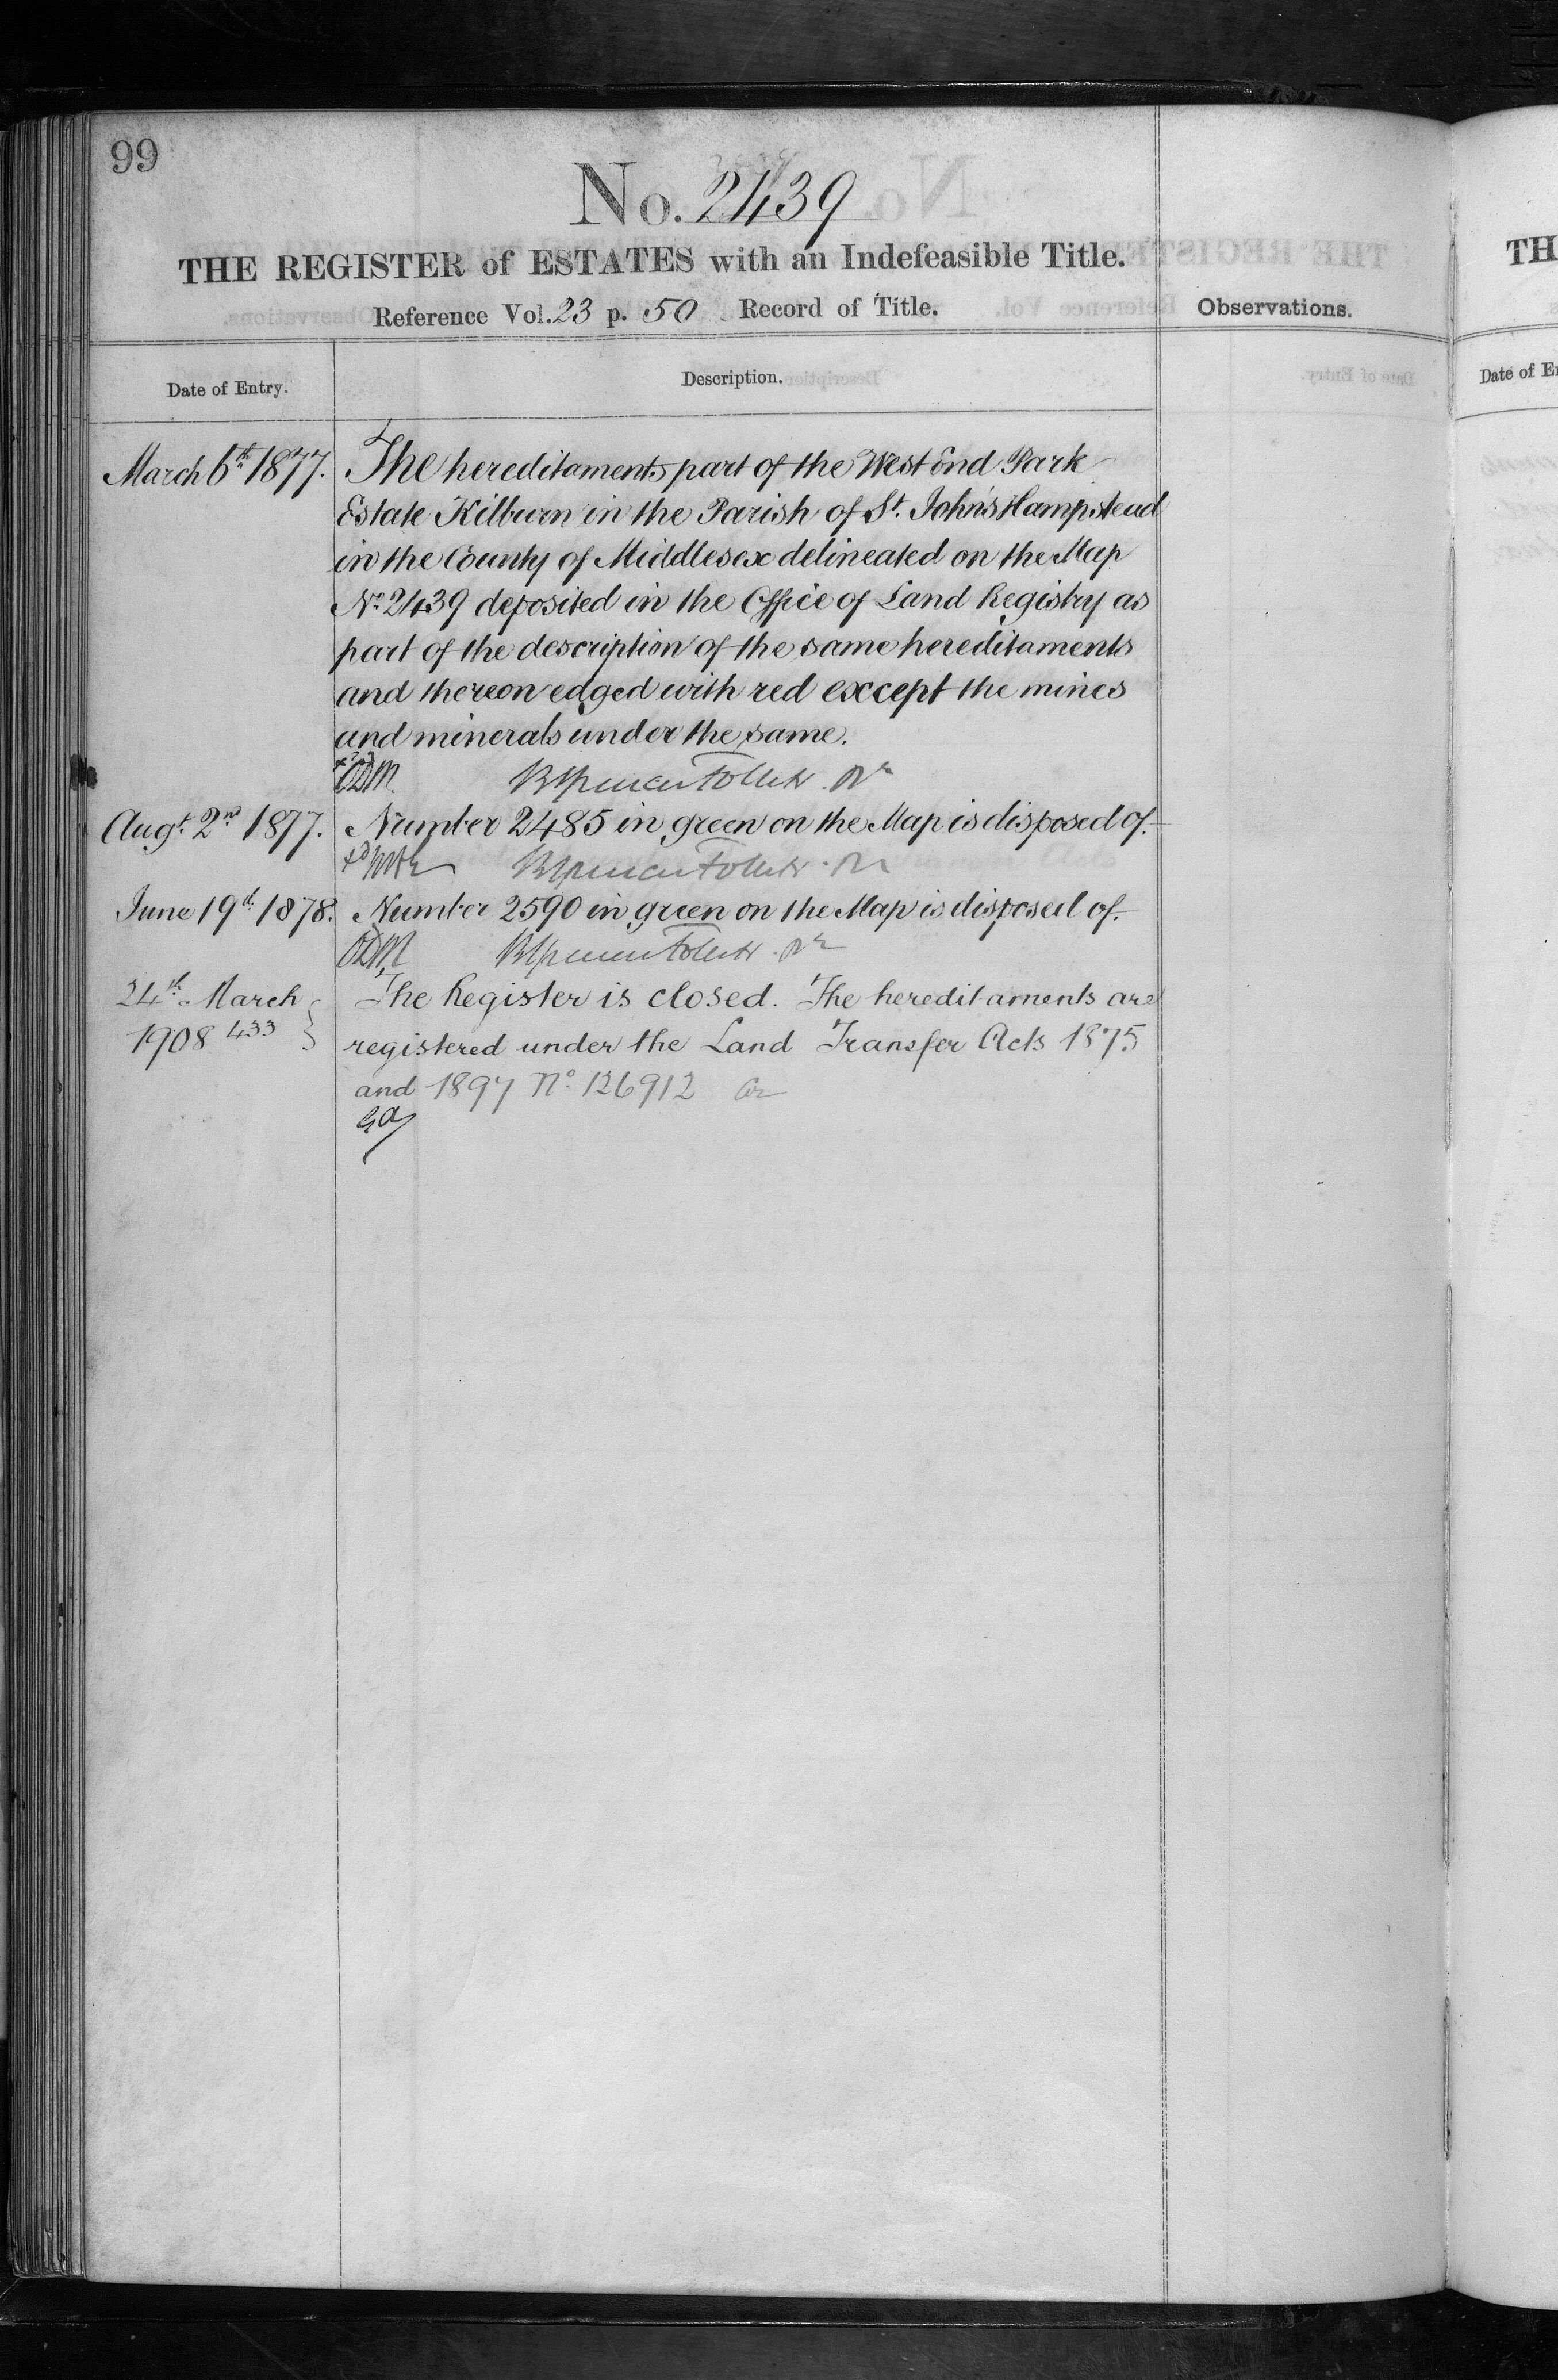 99
No. 2439
THE REGISTER of ESTATES with an Indefeasible Title.
Reference Vol. 23 p. 50 Record of Title.
Observations.
Date of Entry.
Description.
March 6th 1877.
The hereditaments part of the West End Park
Estate Kilburn in the Parish of St. John's Hampstead
in the County of Middlesex delineated on the Map
No. 2439 deposited in the Office of Land Registry as
part of the description of the same hereditaments
and thereon edged with red except the mines
and minerals under the same.
Augt. 2nd 1877.
Number 2485 in green on the Map is disposed of.
June 19th 1878.
Number 2590 in green on the Map is disposed of.
24th March
1908 433
The Register is closed. The hereditaments are
registered under the Land Transfer Acts 1875
and 1897 No. 126912
TH
Date of E